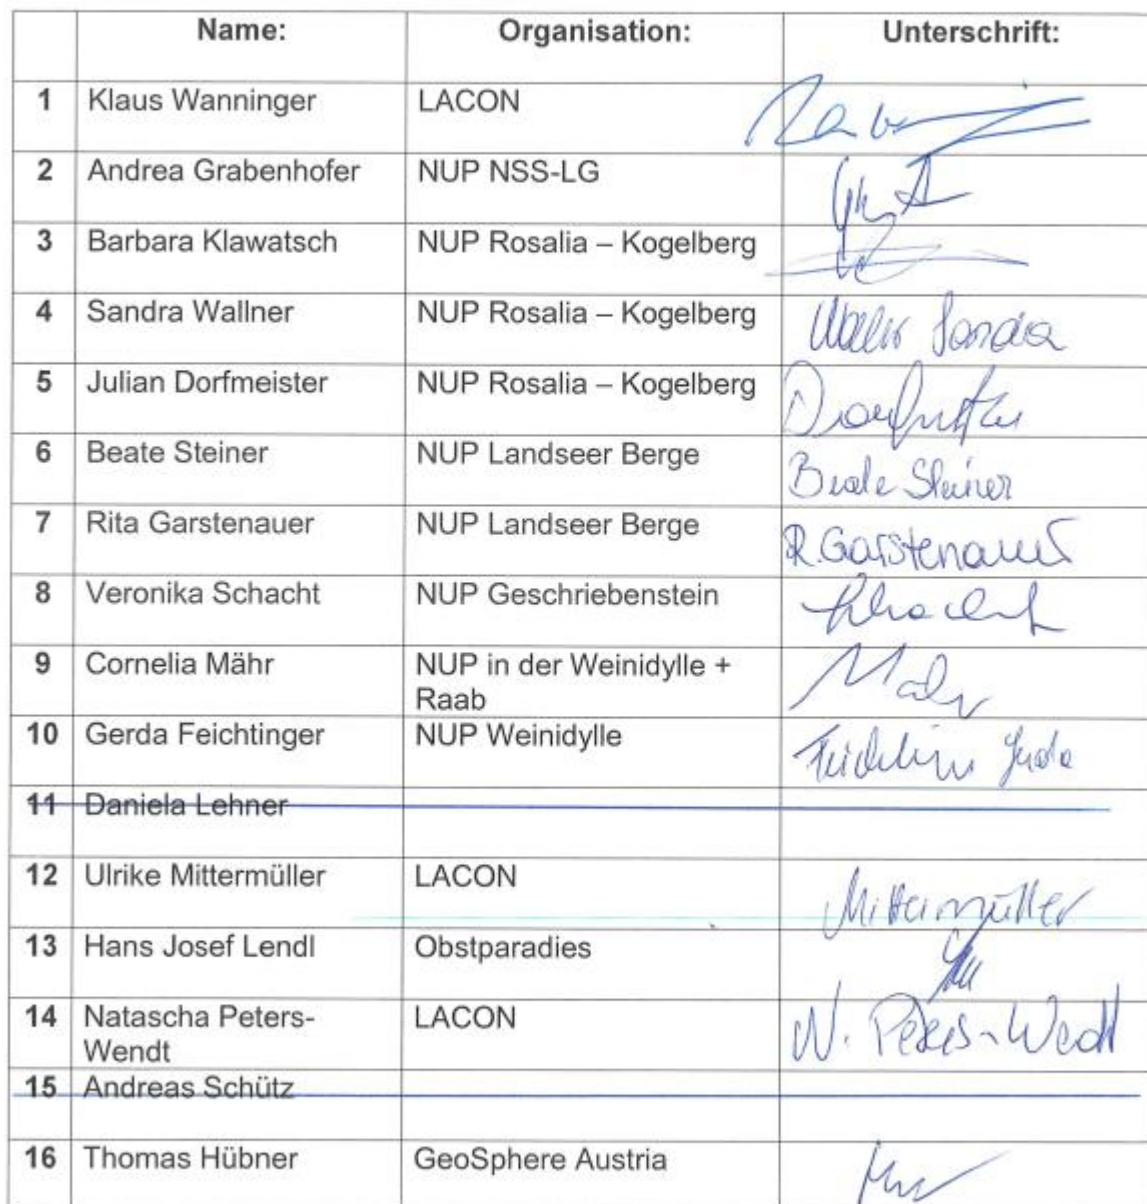 Name: Organisation: Unterschrift:
1 Klaus Wanninger LACON
2 Andrea Grabenhofer NUP NSS-LG
3 Barbara Klawatsch NUP Rosalia – Kogelberg
4 Sandra Wallner NUP Rosalia – Kogelberg Waller Sandra
5 Julian Dorfmeister NUP Rosalia – Kogelberg
6 Beate Steiner NUP Landseer Berge Beate Steiner
7 Rita Garstenauer NUP Landseer Berge R. Garstenauer
8 Veronika Schacht NUP Geschriebenstein Schacht
9 Cornelia Mähr NUP in der Weinidylle + Mähr
Raab
10 Gerda Feichtinger NUP Weinidylle
11 Daniela Lehner
12 Ulrike Mittermüller LACON Mittermüller
13 Hans Josef Lendl Obstparadies
14 Natascha Peters- LACON N. Peters-Wendt
Wendt
15 Andreas Schütz
16 Thomas Hübner GeoSphere Austria